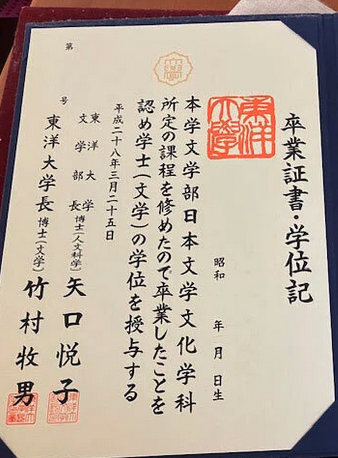 卒業証書・学位記
東洋大學
昭和　年　月　日生
本学文学部日本文学文化学科
所定の課程を修めたので卒業したことを
認め学士(文学)の学位を授与する
平成二十八年三月二十五日
東洋大学
文学部長 博士(人文科学) 矢口悦子
東洋大学長 博士(文学) 竹村牧男
第　号